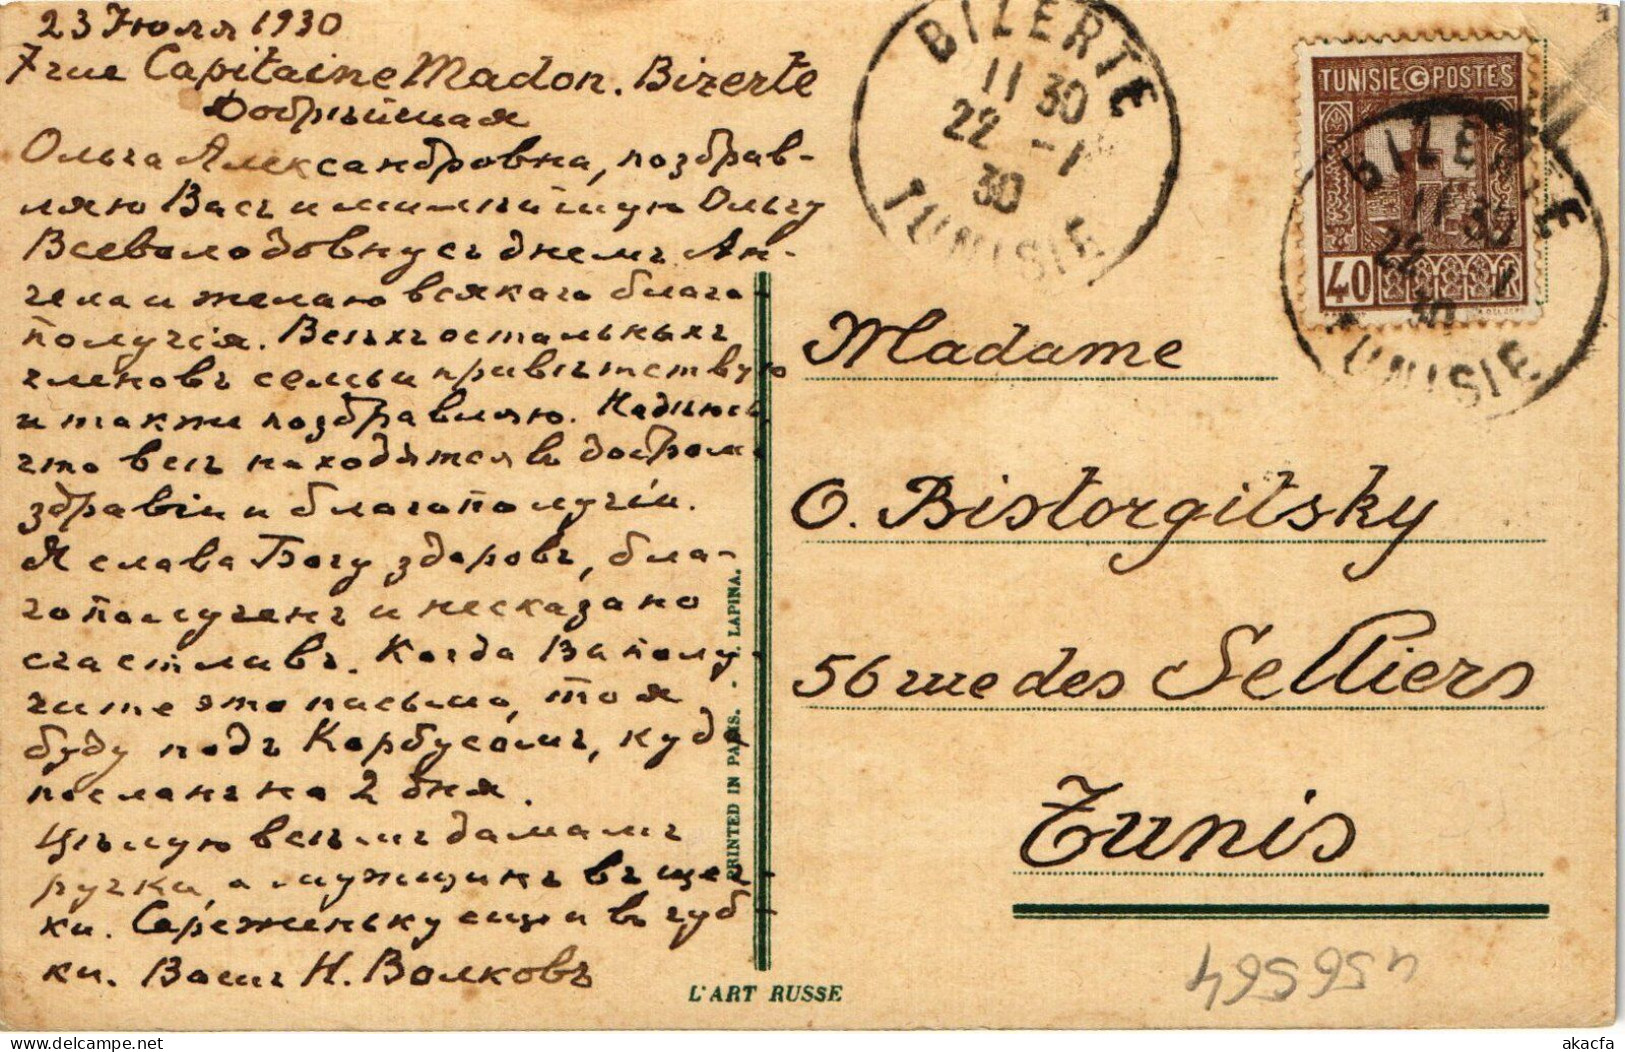 23 Іюля 1930
7 rue Capitaine Madon. Bizerte
Добрѣйшая
Ольга Александровна, поздрав-
ляю Васъ и милѣйшую Ольгу
Всеволодовну съ днемъ Ан-
гела и желаю всякаго благо-
получія. Всѣхъ остальныхъ
членовъ семьи привѣтствую
и также поздравляю. Надѣюсь
что всѣ находятся въ добромъ
здравіи и благополучіи.
Я слава Богу здоровъ, бла-
гополученъ и несказано
счастливъ. Когда Вы полу-
чите это письмо, то я
буду подъ Корбусомъ, куда
посланъ на 2 дня.
Цѣлую всѣмъ дамамъ
ручки, а мужщинъ въ щеч-
ки. Сереженьку еще и въ губ-
ки. Вашъ Н. Волковъ
BIZERTE
11 30
22 -1
30
TUNISIE
TUNISIE POSTES
40
BIZERTE
11 30
22 1
30
TUNISIE
Madame
O. Bistorgitsky
56 rue des Selliers
Tunis
PRINTED IN PARIS. - I. LAPINA.
L'ART RUSSE
456564
akacfa